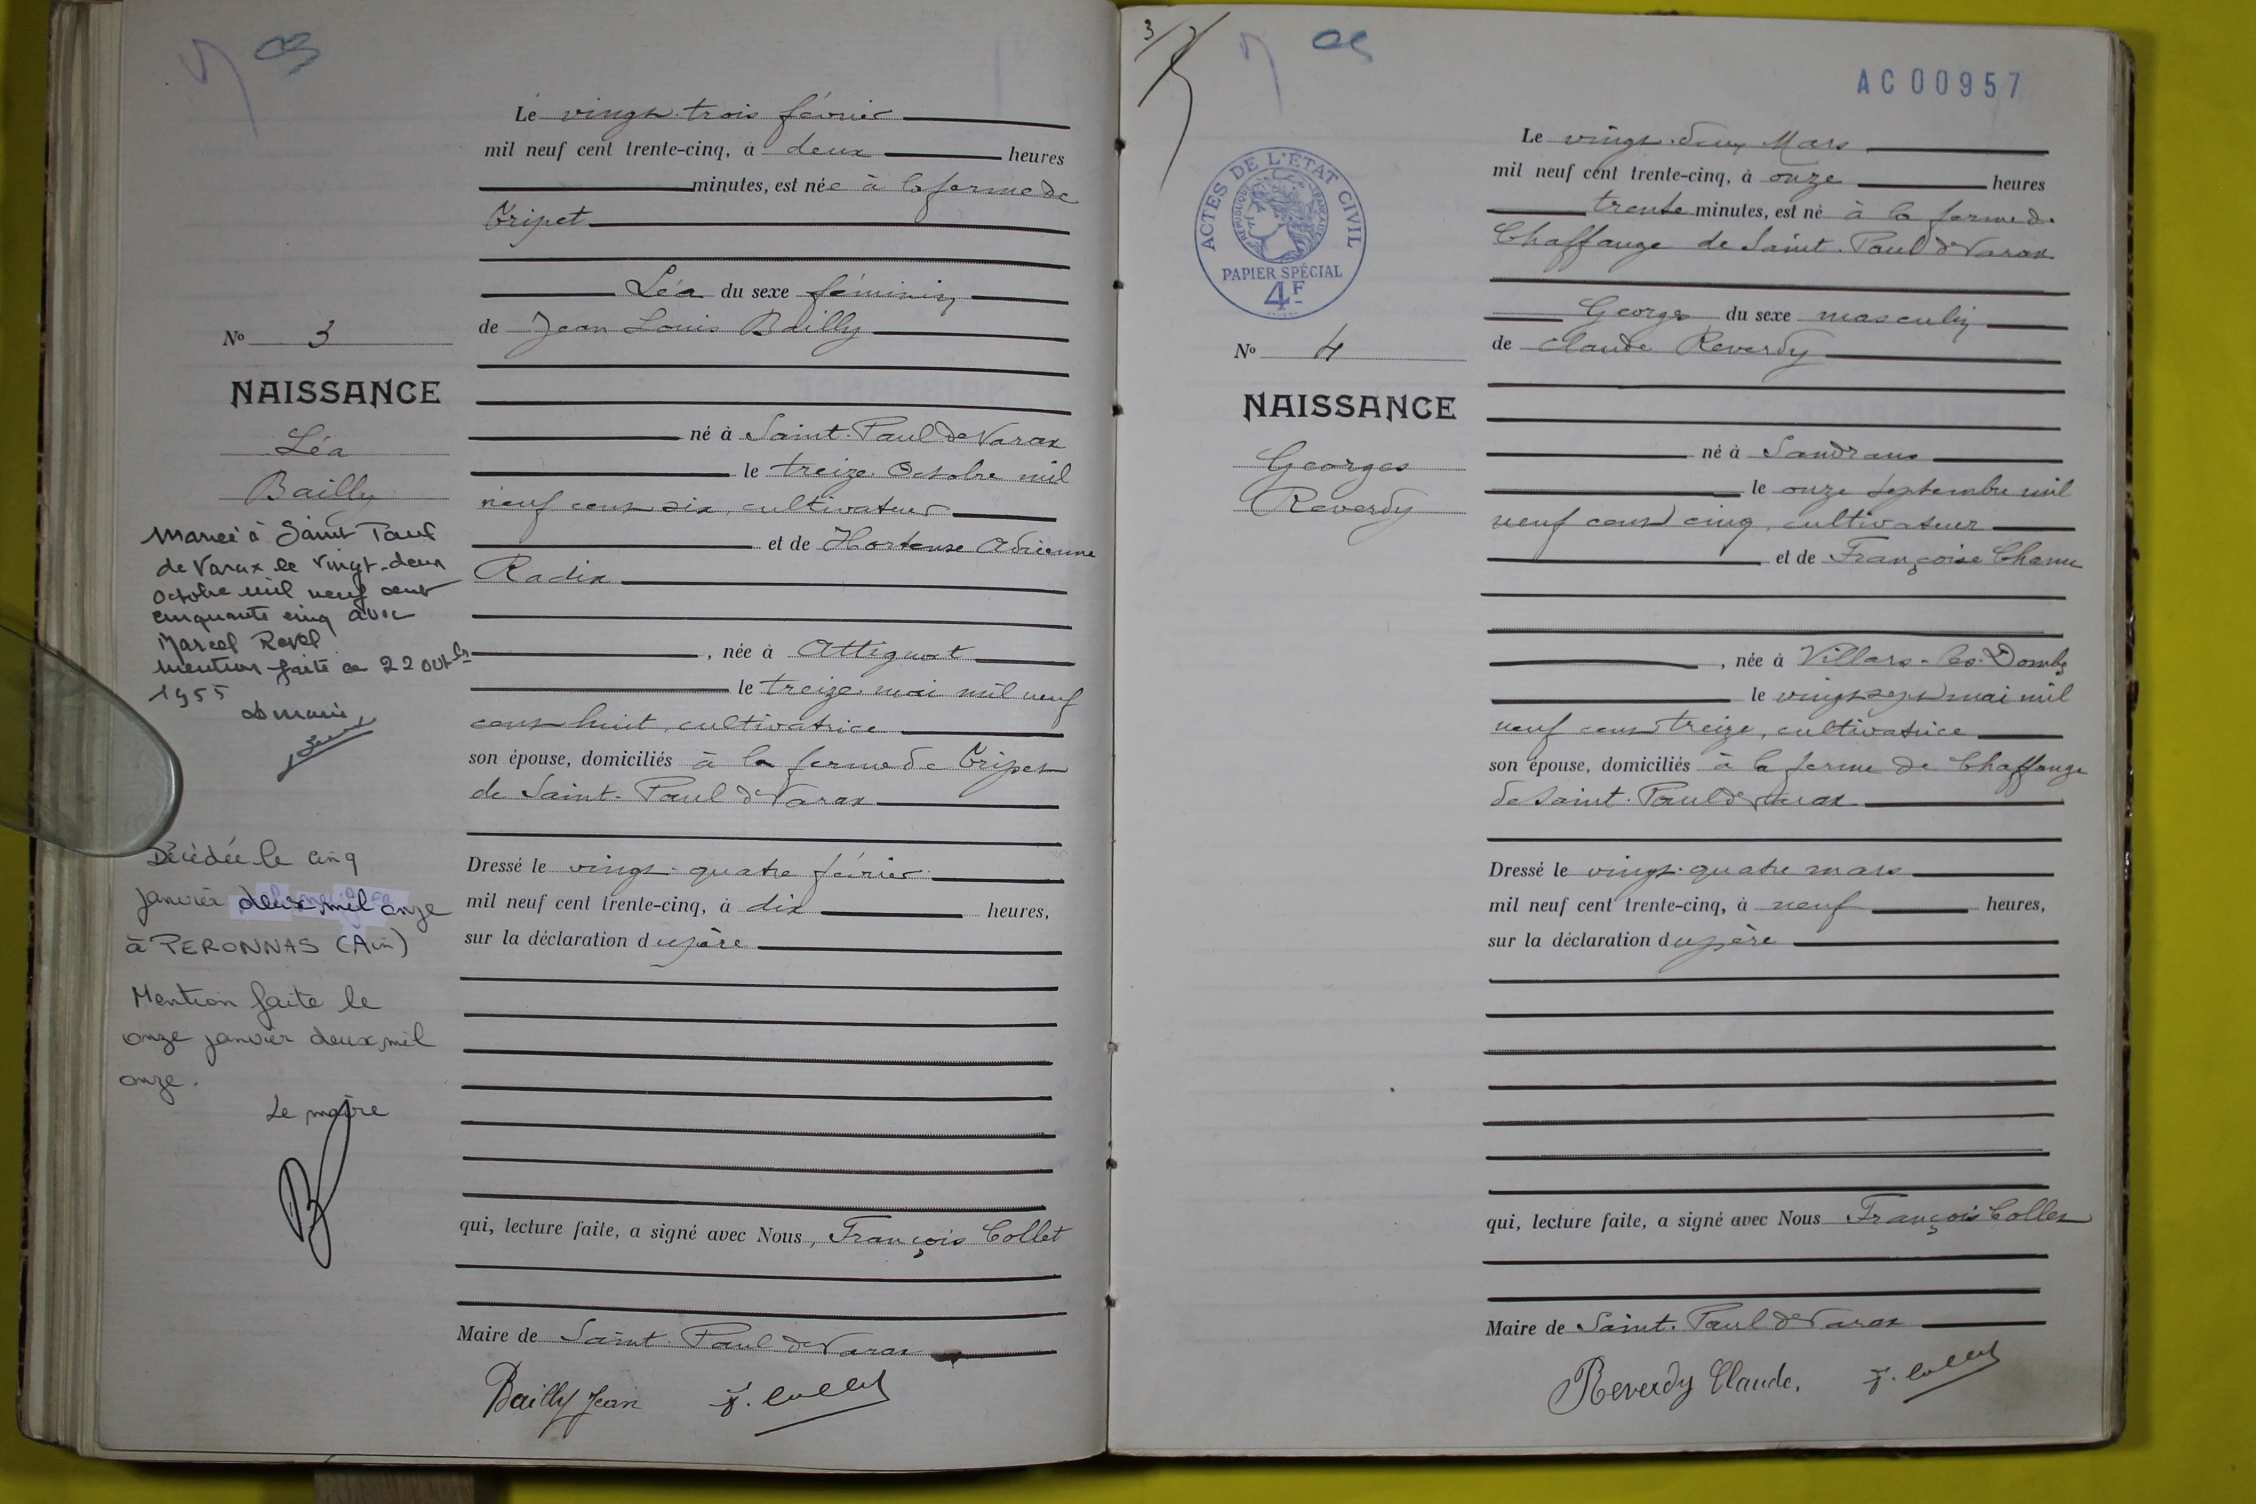 Le vingt-trois février
mil neuf cent trente-cinq, à deux heures
minutes, est née à la ferme de
Tripet
Léa du sexe féminin
No 3
de Jean Louis Bailly
NAISSANCE
né à Saint-Paul de Varax
Léa
le treize Octobre mil
Bailly
neuf cent six, cultivateur
et de Hortense Adrienne
Radix
Mariée à Saint Paul
de Varax le vingt-deux
octobre mil neuf cent
cinquante cinq avec
Marcel Revel
mention faite ce 22 octbre
1955
, née à Attignat
le treize mai mil neuf
cent huit, cultivatrice
son épouse, domiciliés à la ferme de Tripet
de Saint-Paul de Varax
Décédée le cinq
janvier deux mil onze
à PERONNAS (Ain)
Mention faite le
onze janvier deux mil
onze.
Le maire
Dressé le vingt-quatre février
mil neuf cent trente-cinq, à dix heures,
sur la déclaration du père
qui, lecture faite, a signé avec Nous, François Collet
Maire de Saint-Paul de Varax
Bailly Jean F. Collet
3
AC 00957
ACTES DE L'ÉTAT CIVIL
RÉPUBLIQUE FRANÇAISE
PAPIER SPÉCIAL
4F
Le vingt-deux Mars
mil neuf cent trente-cinq, à onze heures
trente minutes, est né à la ferme de
Chaffange de Saint-Paul de Varax
Georges du sexe masculin
No 4
de Claude Reverdy
NAISSANCE
Georges
Reverdy
né à Sandrans
le onze Septembre mil
neuf cent cinq, cultivateur
et de Françoise Chanu
, née à Villars-les-Dombes
le vingt sept mai mil
neuf cent treize, cultivatrice
son épouse, domiciliés à la ferme de Chaffange
de Saint-Paul de Varax
Dressé le vingt-quatre mars
mil neuf cent trente-cinq, à neuf heures,
sur la déclaration du père
qui, lecture faite, a signé avec Nous François Collet
Maire de Saint-Paul de Varax
Reverdy Claude. F. Collet